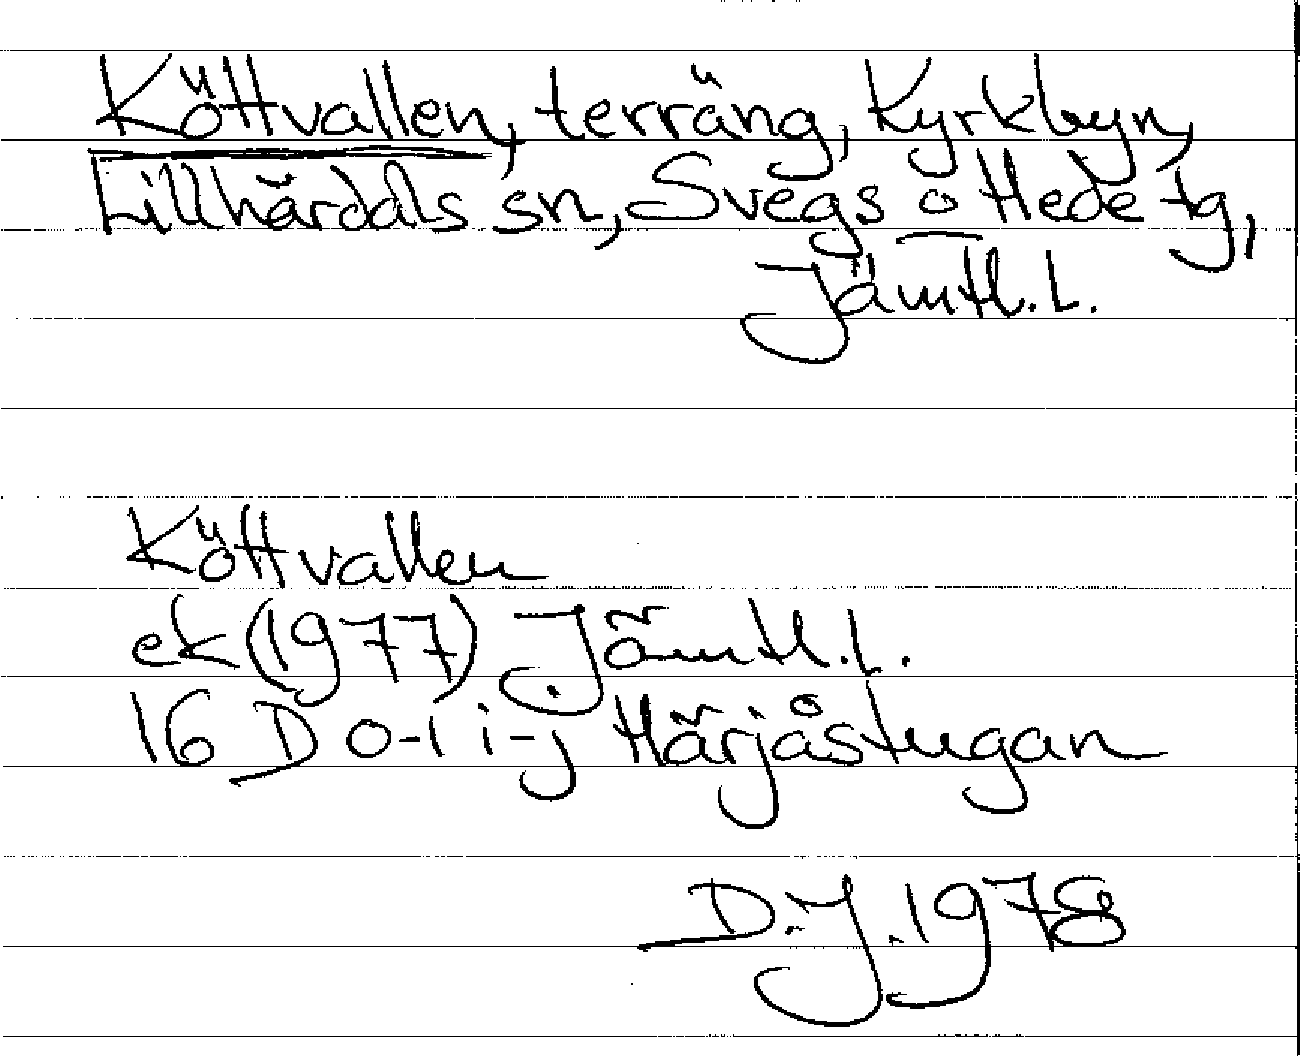 Köttvallen, terräng, Kyrkbyn,
Lillhärdals sn, Svegs o Hede tg,
Jämtl. l.
Köttvallen
ek (1977) Jämtl. l.
16 D 0-1 i-j Härjåstugan
D.J. 1978